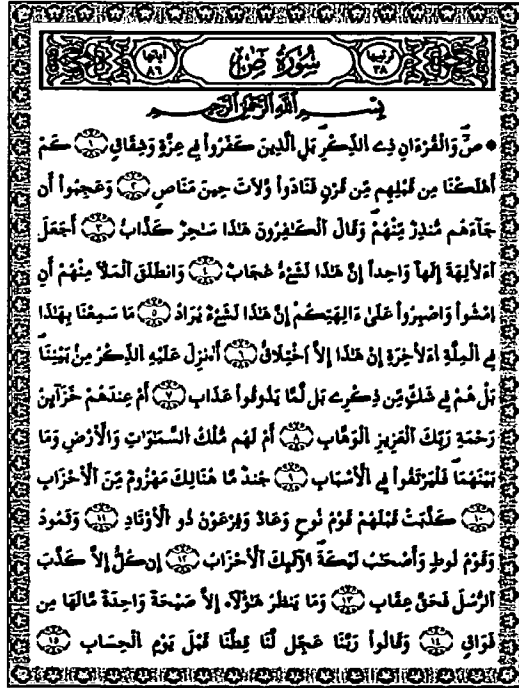 ترتيبها ٣٨ سُورَةُ صٓ آياتها ٨٦
بِسْمِ اِ۬للَّهِ اِ۬لرَّحْمَٰنِ اِ۬لرَّحِيمِ
صٓ وَالْقُرْءَانِ ذِے اِ۬لذِّكْرِ بَلِ اِ۬لَّذِينَ كَفَرُواْ فِے عِزَّةٖ وَشِقَاقٖ ١ كَمَ
اَهْلَكْنَا مِن قَبْلِهِم مِّن قَرْنٖ فَنَادَواْ وَّلَاتَ حِينَ مَنَاصٖ ٢ وَعَجِبُواْ أَن
جَآءَهُم مُّنذِرٞ مِّنْهُمْ وَقَالَ اَ۬لْكَٰفِرُونَ هَٰذَا سَٰحِرٞ كَذَّابٌ ٣ اَجَعَلَ
اَ۬لَالِهَةَ إِلَٰهاٗ وَٰحِداً اِنَّ هَٰذَا لَشَےْءٌ عُجَابٞ ٤ وَانطَلَقَ اَ۬لْمَلَأُ مِنْهُمُ أَنِ
اِ۪مْشُواْ وَاصْبِرُواْ عَلَىٰٓ ءَالِهَتِكُمُ إِنَّ هَٰذَا لَشَےْءٞ يُرَادُ ٥ مَا سَمِعْنَا بِهَٰذَا
فِے اِ۬لْمِلَّةِ اِ۬لَاخِرَةِ إِنْ هَٰذَآ إِلَّا اَ۪خْتِلَٰقٌ ٦ اَ۟نزِلَ عَلَيْهِ اِ۬لذِّكْرُ مِنۢ بَيْنِنَا
بَلْ هُمْ فِے شَكّٖ مِّن ذِكْرِے بَل لَّمَّا يَذُوقُواْ عَذَابِ ٧ أَمْ عِندَهُمْ خَزَآئِنُ
رَحْمَةِ رَبِّكَ اَ۬لْعَزِيزِ اِ۬لْوَهَّابِ ٨ أَمْ لَهُم مُّلْكُ اُ۬لسَّمَٰوَٰتِ وَالْأَرْضِ وَمَا
بَيْنَهُمَا فَلْيَرْتَقُواْ فِے اِ۬لْأَسْبَٰبِ ٩ جُندٞ مَّا هُنَالِكَ مَهْزُومٞ مِّنَ اَ۬لْأَحْزَابِ
١٠ كَذَّبَتْ قَبْلَهُمْ قَوْمُ نُوحٖ وَعَادٞ وَفِرْعَوْنُ ذُو اُ۬لْأَوْتَادِ ١١ وَثَمُودُ
وَقَوْمُ لُوطٖ وَأَصْحَٰبُ لَيْكَةَ أُوْلَٰٓئِكَ اَ۬لْأَحْزَابُ ١٢ إِن كُلٌّ اِلَّا كَذَّبَ
اَ۬لرُّسُلَ فَحَقَّ عِقَابِ ١٣ وَمَا يَنظُرُ هَٰٓؤُلَآءِ اِلَّا صَيْحَةٗ وَٰحِدَةٗ مَّا لَهَا مِن
فَوَاقٖ ١٤ وَقَالُواْ رَبَّنَا عَجِّل لَّنَا قِطَّنَا قَبْلَ يَوْمِ اِ۬لْحِسَابِ ١٥